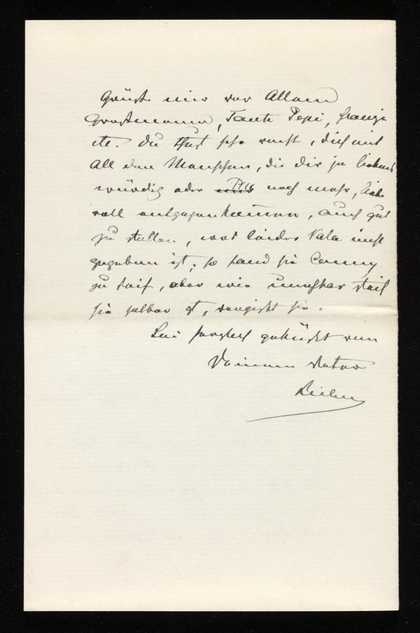 Grüße mir vor Allem
Großmama, Tante Pepi,
etc. Du thust sehr recht, dich mit
All den Menschen, die dir so liebens
würdig oder noch mehr, lieb
voll entgegenkommen, auch gut
zu stellen, was leider Vielen nicht
gegeben ist; so fand sie Conny
zu steif, aber wie unnahbar steif
sie selber ist, vergißt sie.
Sei herzlich geküßt von
Deinem Vater